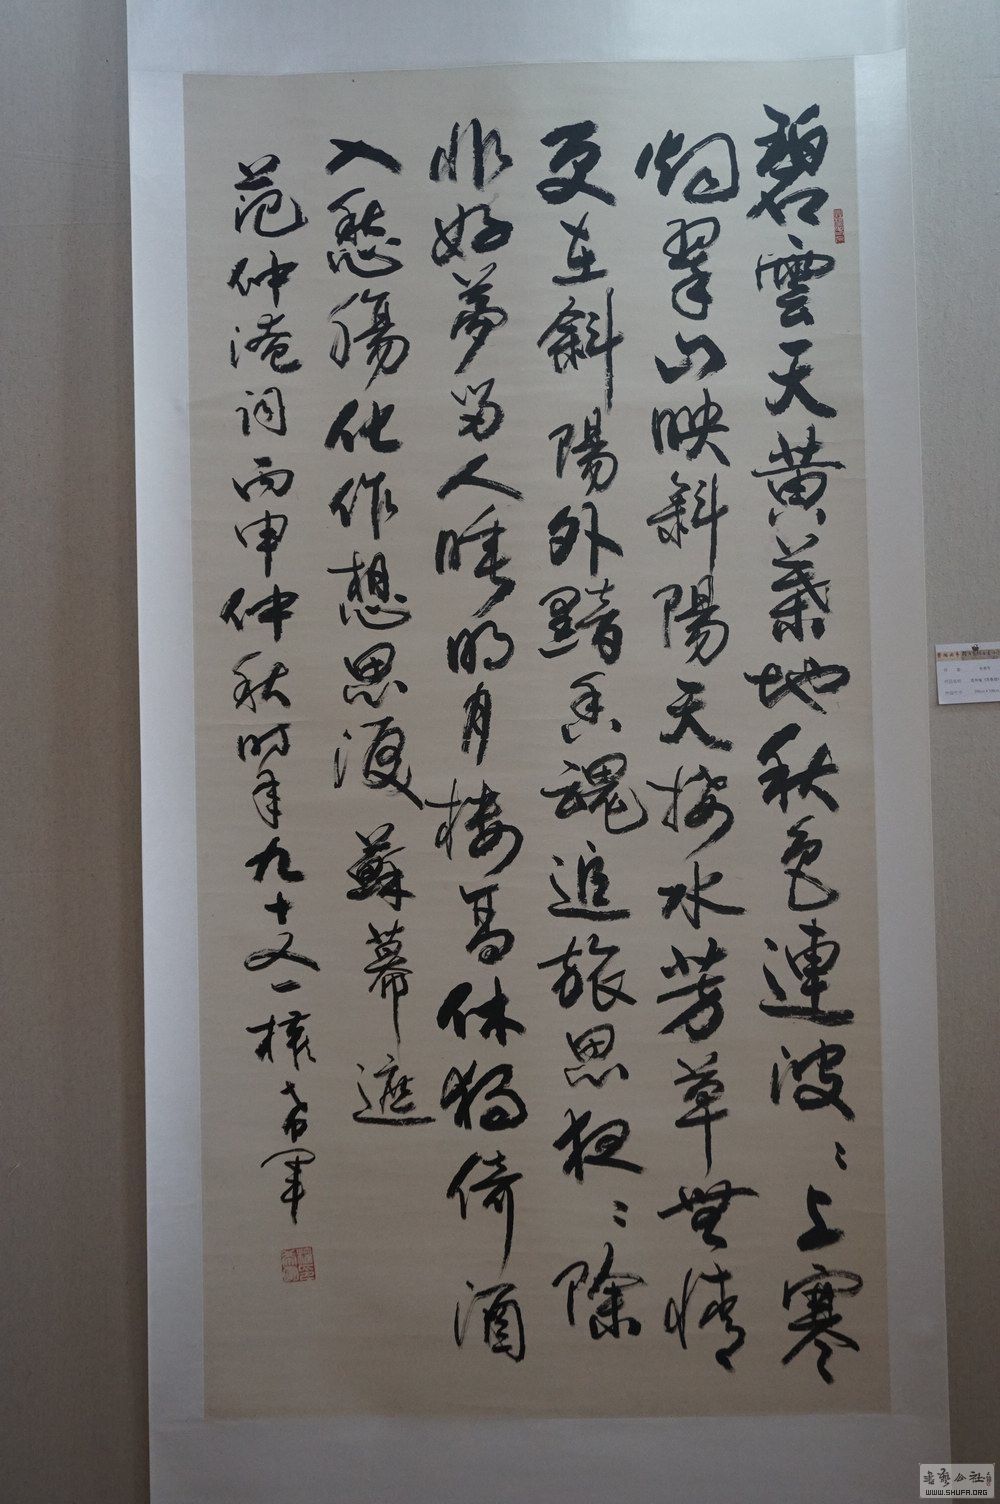 碧雲天黄葉地秋色連波〻上寒
烟翠山映斜陽天接水芳草無情
更在斜陽外黯鄉魂追旅思夜〻除
非好夢留人睡明月樓高休獨倚酒
入愁腸化作想思淚 蘇幕遮
范仲淹詞丙申仲秋時年九十又一權希軍
書藝公社
WWW.SHUFA.ORG